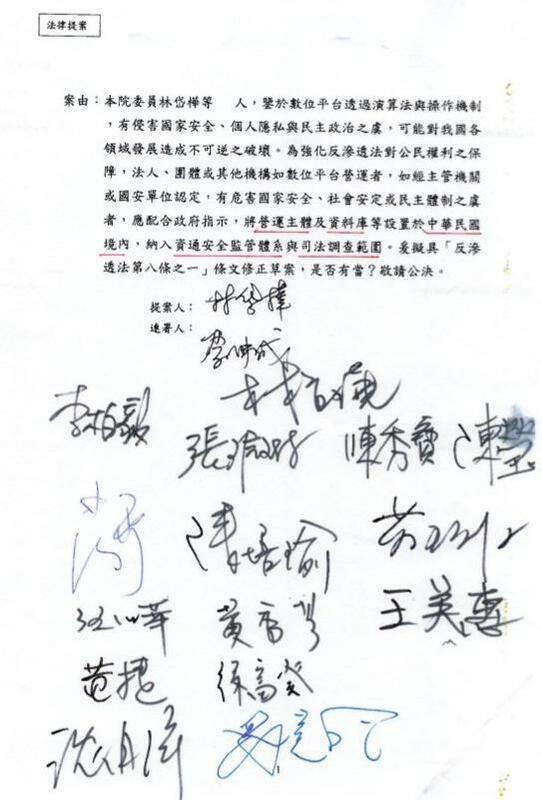 法律提案
案由：本院委員林岱樺等　人，鑒於數位平台透過演算法與操作機制
，有侵害國家安全、個人隱私與民主政治之虞，可能對我國各
領域發展造成不可逆之破壞。為強化反滲透法對公民權利之保
障，法人、團體或其他機構如數位平台營運者，如經主管機關
或國安單位認定，有危害國家安全、社會安定或民主體制之虞
者，應配合政府指示，將營運主體及資料庫等設置於中華民國
境內，納入資通安全監管體系與司法調查範圍。爰擬具「反滲
透法第八條之一」條文修正草案，是否有當？敬請公決。
提案人：林岱樺
連署人：
李柏毅
陳秀寶
陳培瑜
王美惠
黃秀芳
黃捷
徐富癸